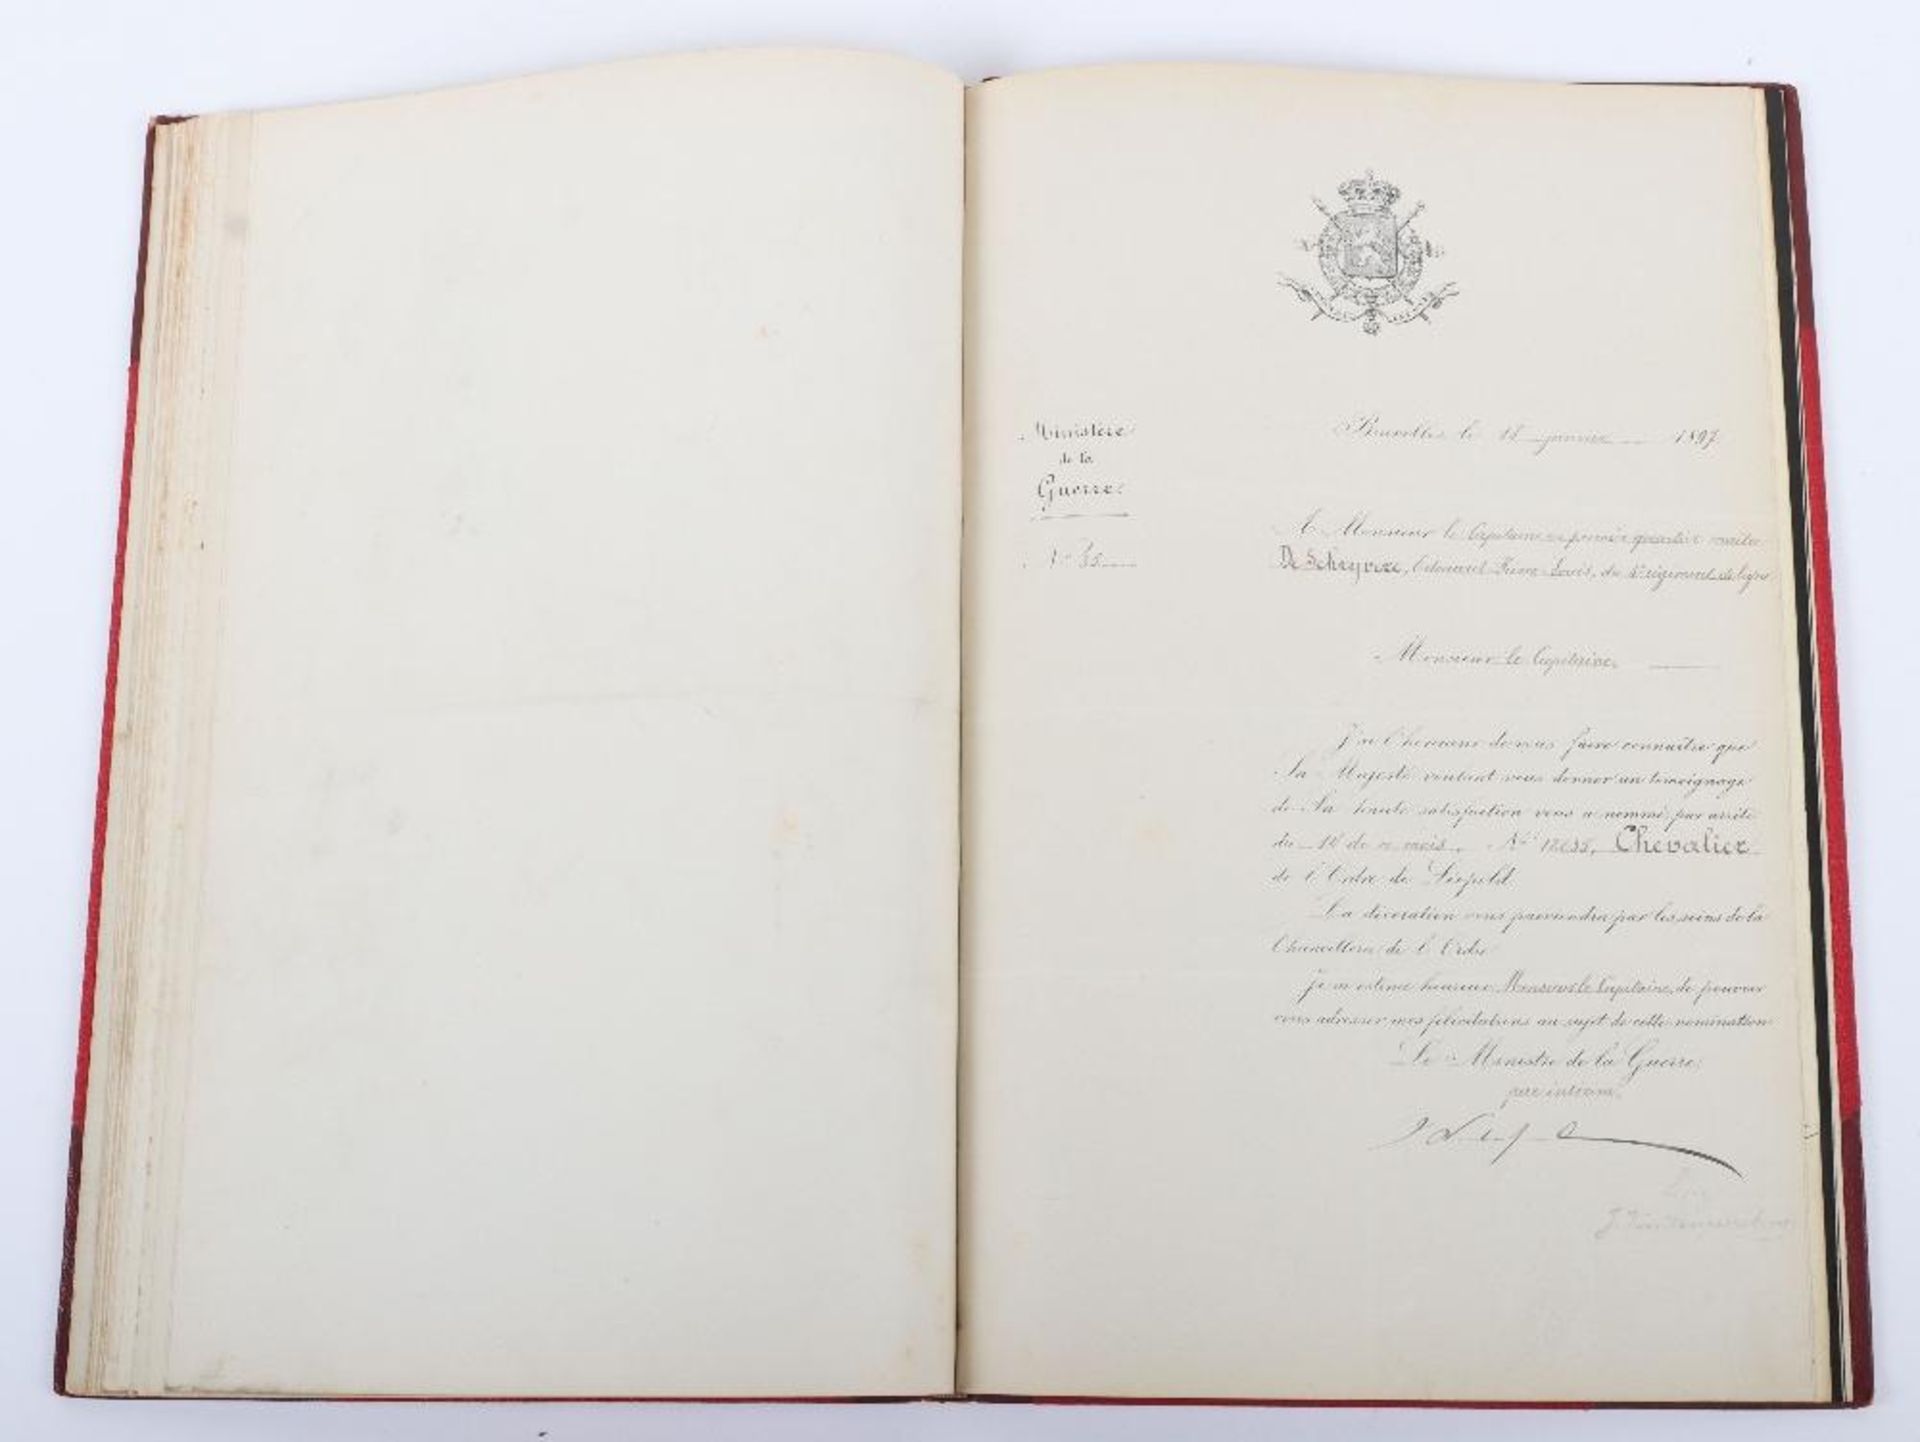 Ministère
de la
Guerre.
N° 35
Bruxelles le 18 janvier 1897
A Monsieur le Capitaine en premier quartier maître
De Schryvere, Edouard Pierre Louis, du régiment de ligne
Monsieur le Capitaine,
J'ai l'honneur de vous faire connaître que
Sa Majesté voulant vous donner un témoignage
de Sa haute satisfaction vous a nommé, par arrêté
du de ce mois, N° Chevalier
de l'Ordre de Léopold.
La décoration vous parviendra par les soins de la
Chancellerie de l'Ordre.
Je m'estime heureux Monsieur le Capitaine, de pouvoir
vous adresser mes félicitations au sujet de cette nomination
Le Ministre de la Guerre,
par intérim,